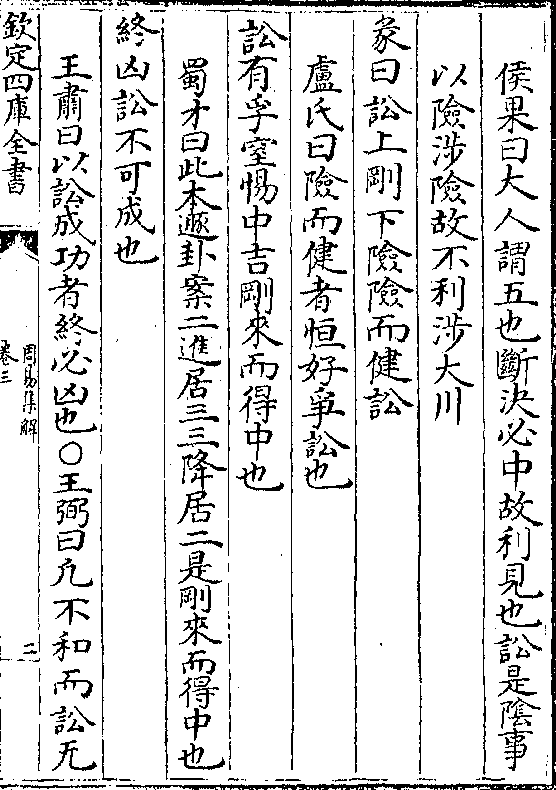 侯果曰大人謂五也斷決必中故利見也訟是隂事
以險涉險故不利涉大川
彖曰訟上剛下險險而健訟
盧氏曰險而健者恒好爭訟也
訟有孚窒惕中吉剛來而得中也
蜀才曰此本遯卦案二進居三三降居二是剛來而得中也
終凶訟不可成也
王肅曰以訟成功者終必凶也○王弼曰凡不和而訟无
欽定四庫全書
周易集解
卷三
二